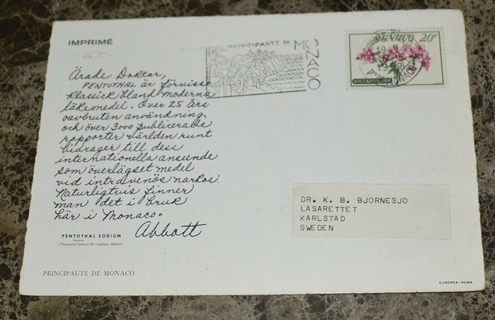 IMPRIMÉ
PRINCIPAUTÉ DE
MONACO
MONACO 20F
Ärade Doktor,
PENTOTHAL är förvisso
klassisk bland moderna
läkemedel. Över 25 års
oavbruten användning
och över 3000 publicerade
rapporter världen runt
bidrager till dess
internationella anseende
som överlägset medel
vid intravenös narkos.
Naturligtvis finner
man det i bruk
här i Monaco.
Abbott
PENTOTHAL SODIUM
DR. K. B. BJORNESJO
LASARETTET
KARLSTAD
SWEDEN
PRINCIPAUTE DE MONACO
EUROPEA - ROMA